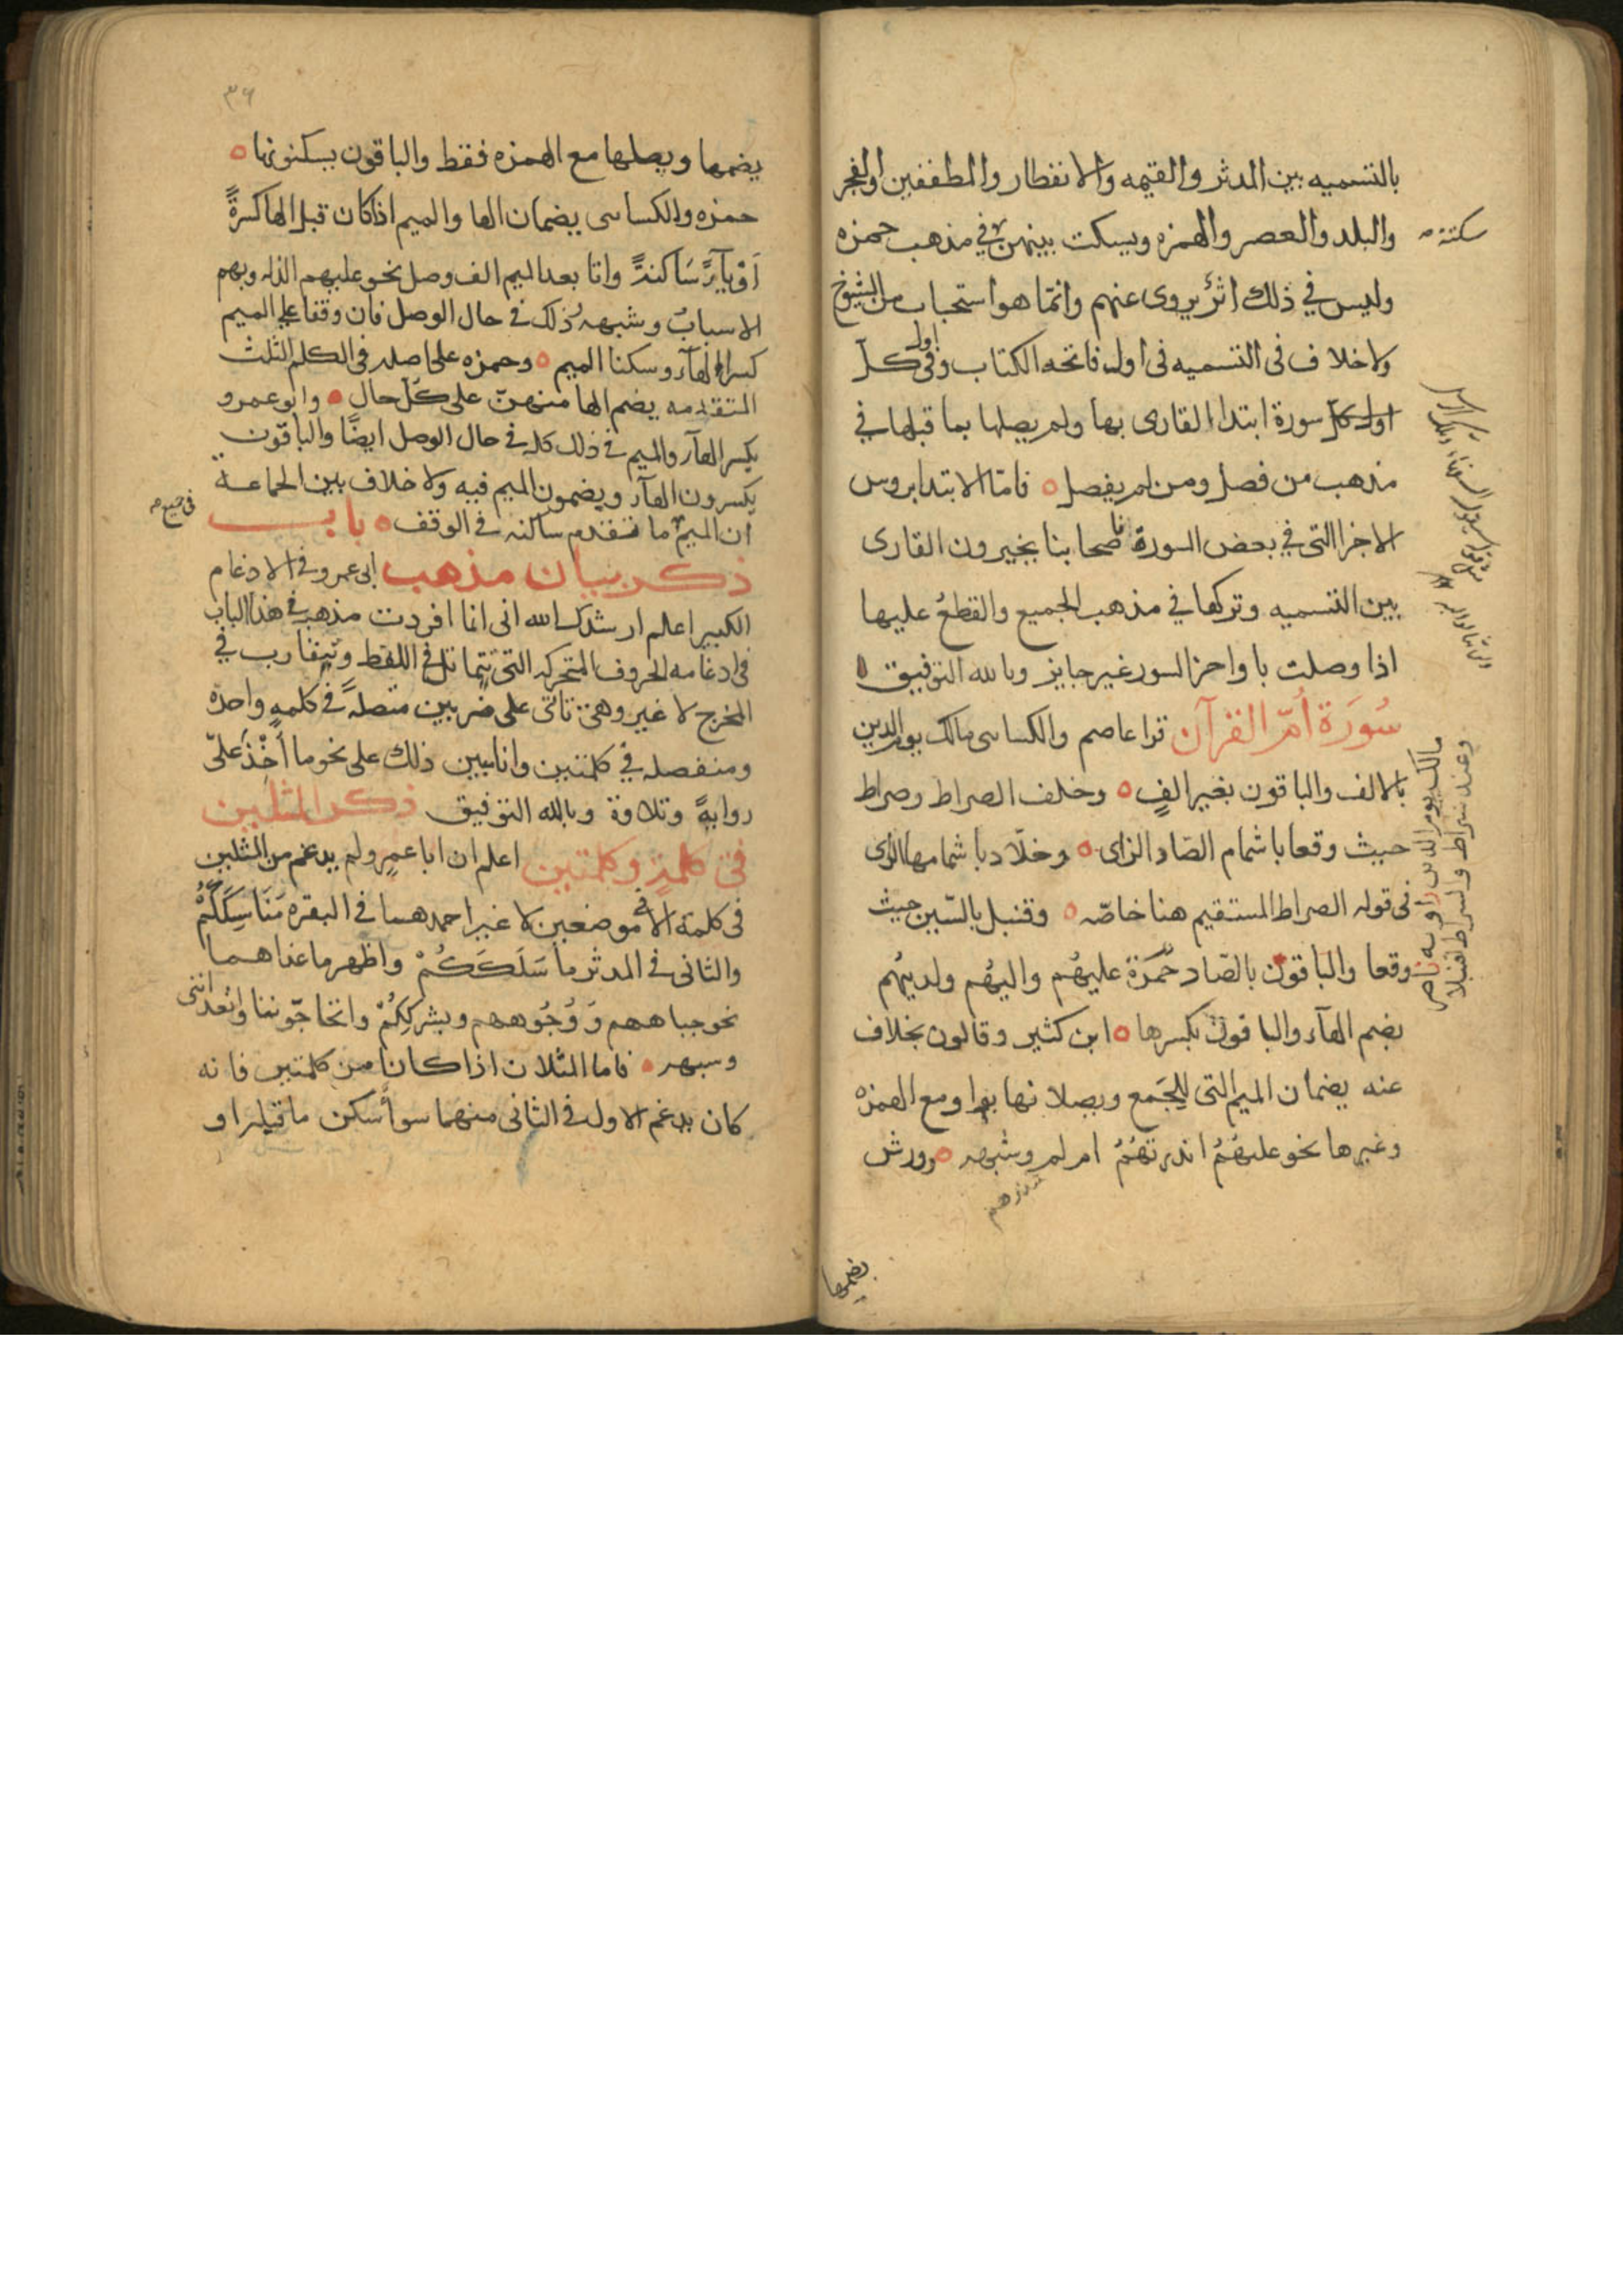 بالتسميه بين المدثر والقيمه والانفطار والمطففين والفجر
والبلد والعصر والهمزه ويسكت بينهن في مذهب حمزه
سكتة
وليس في ذلك اثرٌ يروى عنهم وانمّا هو استحباب من الشيوخ
ولا خلاف فى التسميه فى اول فاتحه الكتاب وفى اول كلّ
سورة ابتدا القارى بها ولم يصلها بما قبلها في
مذهب من فصل ومن لم يفصل ه فامّا الابتدا بروس
الاجزا التى في بعض السورة فاصحابنا يخيرون القارى
بين التسميه وتركها في مذهب الجميع والقطعُ عليها
اذا وصلت باواخر السور غير جايز وبالله التوفيق ه
سُورَة أمّ القرآن قرا عاصم والكساى مالك يوم الدين
بالالف والباقون بغير الفٍ ه وخلف الصراط وصراط
حيث وقعا باشمام الصّاد الزاى ه وخلّاد باشمامها الزاى
فى قوله الصراط المستقيم هنا خاصّه ه وقنبل بالسّين حيث
وقعا والباقون بالصّاد حمزة عليهُم واليهُم ولديهُم
بضم الهآء والباقون بكسرها ه ابن كثير وقالون بخلاف
عنه يضمان الميم التى للجَمع ويصلانها بواو مع الهمزه
وغيرها نحو عليهُمُ انذرتهُمُ ام لم وشبهه ه وورش
مالك يوم الدين راويه ناصر
وعند سراط والسراط لقنبلا
يضمها
٣٦
يضمها ويصلها مع الهمزه فقط والباقون يسكنونها ه
حمزه والكساى يضمان الها والميم اذا كان قبل الها كسرةً
اَوْ يآءً سَاكنةً واتا بعد الميم الف وصل نحو عليهم الذله وبهم
الاسبابُ وشبهه وذلك فى حال الوصل فان وقفا على الميم
كسرا الهآء وسكنا الميم ه وحمزه على اصله فى الكلم الثلث
المتقدمه يضم الها منهنّ على كلّ حال ه وابو عمرو
يكسر الهآء والميم فى ذلك كله فى حال الوصل ايضًا والباقون
يكسرون الهآء ويضمون الميم فيه ولا خلاف بين الجماعة
ان الميم ما تقدم ساكنه فى الوقف ه باب
فى جميع
ذكر بيان مذهب ابى عمرو فى الادغام
الكبير اعلم ارشدك الله انى انما افردت مذهبه فى هذا الباب
فى ادغامه الحروف المتحركه التى تتماثل فى اللفظ وتتقارب في
المخرج لا غير وهى تاتى على ضربين متصلةً فى كلمهٍ واحدهٍ
ومنفصله في كلمتين وانا مبين ذلك على نحو ما اُخِذَ علىّ
روايهً وتلاوة وبالله التوفيق ذكر المثلين
فى كلمة وكلمتين اعلم ان ابا عمرٍو لم يدغم من المثلين
فى كلمة الا فى موضعين لا غير احدهما فى البقره مَنَاسِكَكُمْ
والثانى فى المدثر ما سَلَكَكُمْ واظهر ما عداهما
نحو جباههم وَوُجُوههم وبشرِكِكُمْ واتحاجّوننا واتعدانني
وشبهه ه فاما المثلان اذا كانا من كلمتين فانه
كان يدغم الاول فى الثانى منهما سوأ سكن ما قبله او